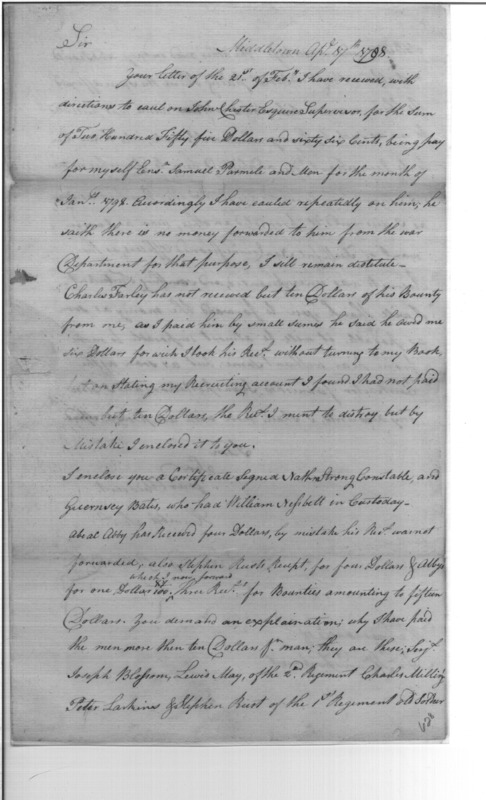 Sir
Middletown Apl. 7th. 1798
Your letter of the 21st. of Feby. I have received, with
directions to caul on John Chester Esquire Supervisor, for the Sum
of Two Hundred Fifty five Dollars and sixty six Cents, being pay
for myself Ens. Samuel Parmele and Men for the month of
Jany. 1798. Accordingly I have cauled repeatedly on him; he
saith there is no money forwarded to him from the war
Department for that purpose, I sill remain distitute—
Charles Farley has not received but ten Dollars of his Bounty
from me, as I paid him by small sumes he said he owed me
six Dollars for wich I took his Rect. without turning to my Book,
but on Stating my Recruiting account I found I had not paid
but ten Dollars, the Rect. I ment to distroy but by
Mistake I enclosed it to you.
I enclose you a Certificate Signed Nathn Strong Constable, and
Guernsey Bates, who had William Nesbett in Custoday—
Abeat Abby has Received four Dollars, by mistake his Rect. was not
forwarded; also Stephen Rusts Recept, for four Dollars & Abbys
which I now forward
for one Dollar three Rects. for Bounties amounting to fifteen
Dollars. You demand an explaination; why I have paid
the men more then ten Dollars pr. man; they are these; Serjt.
Joseph Blossom, Lewis May, of the 2nd Regiment Charles
Peter Larkins & Stephen Rust of the 1st Regiment old Soldier